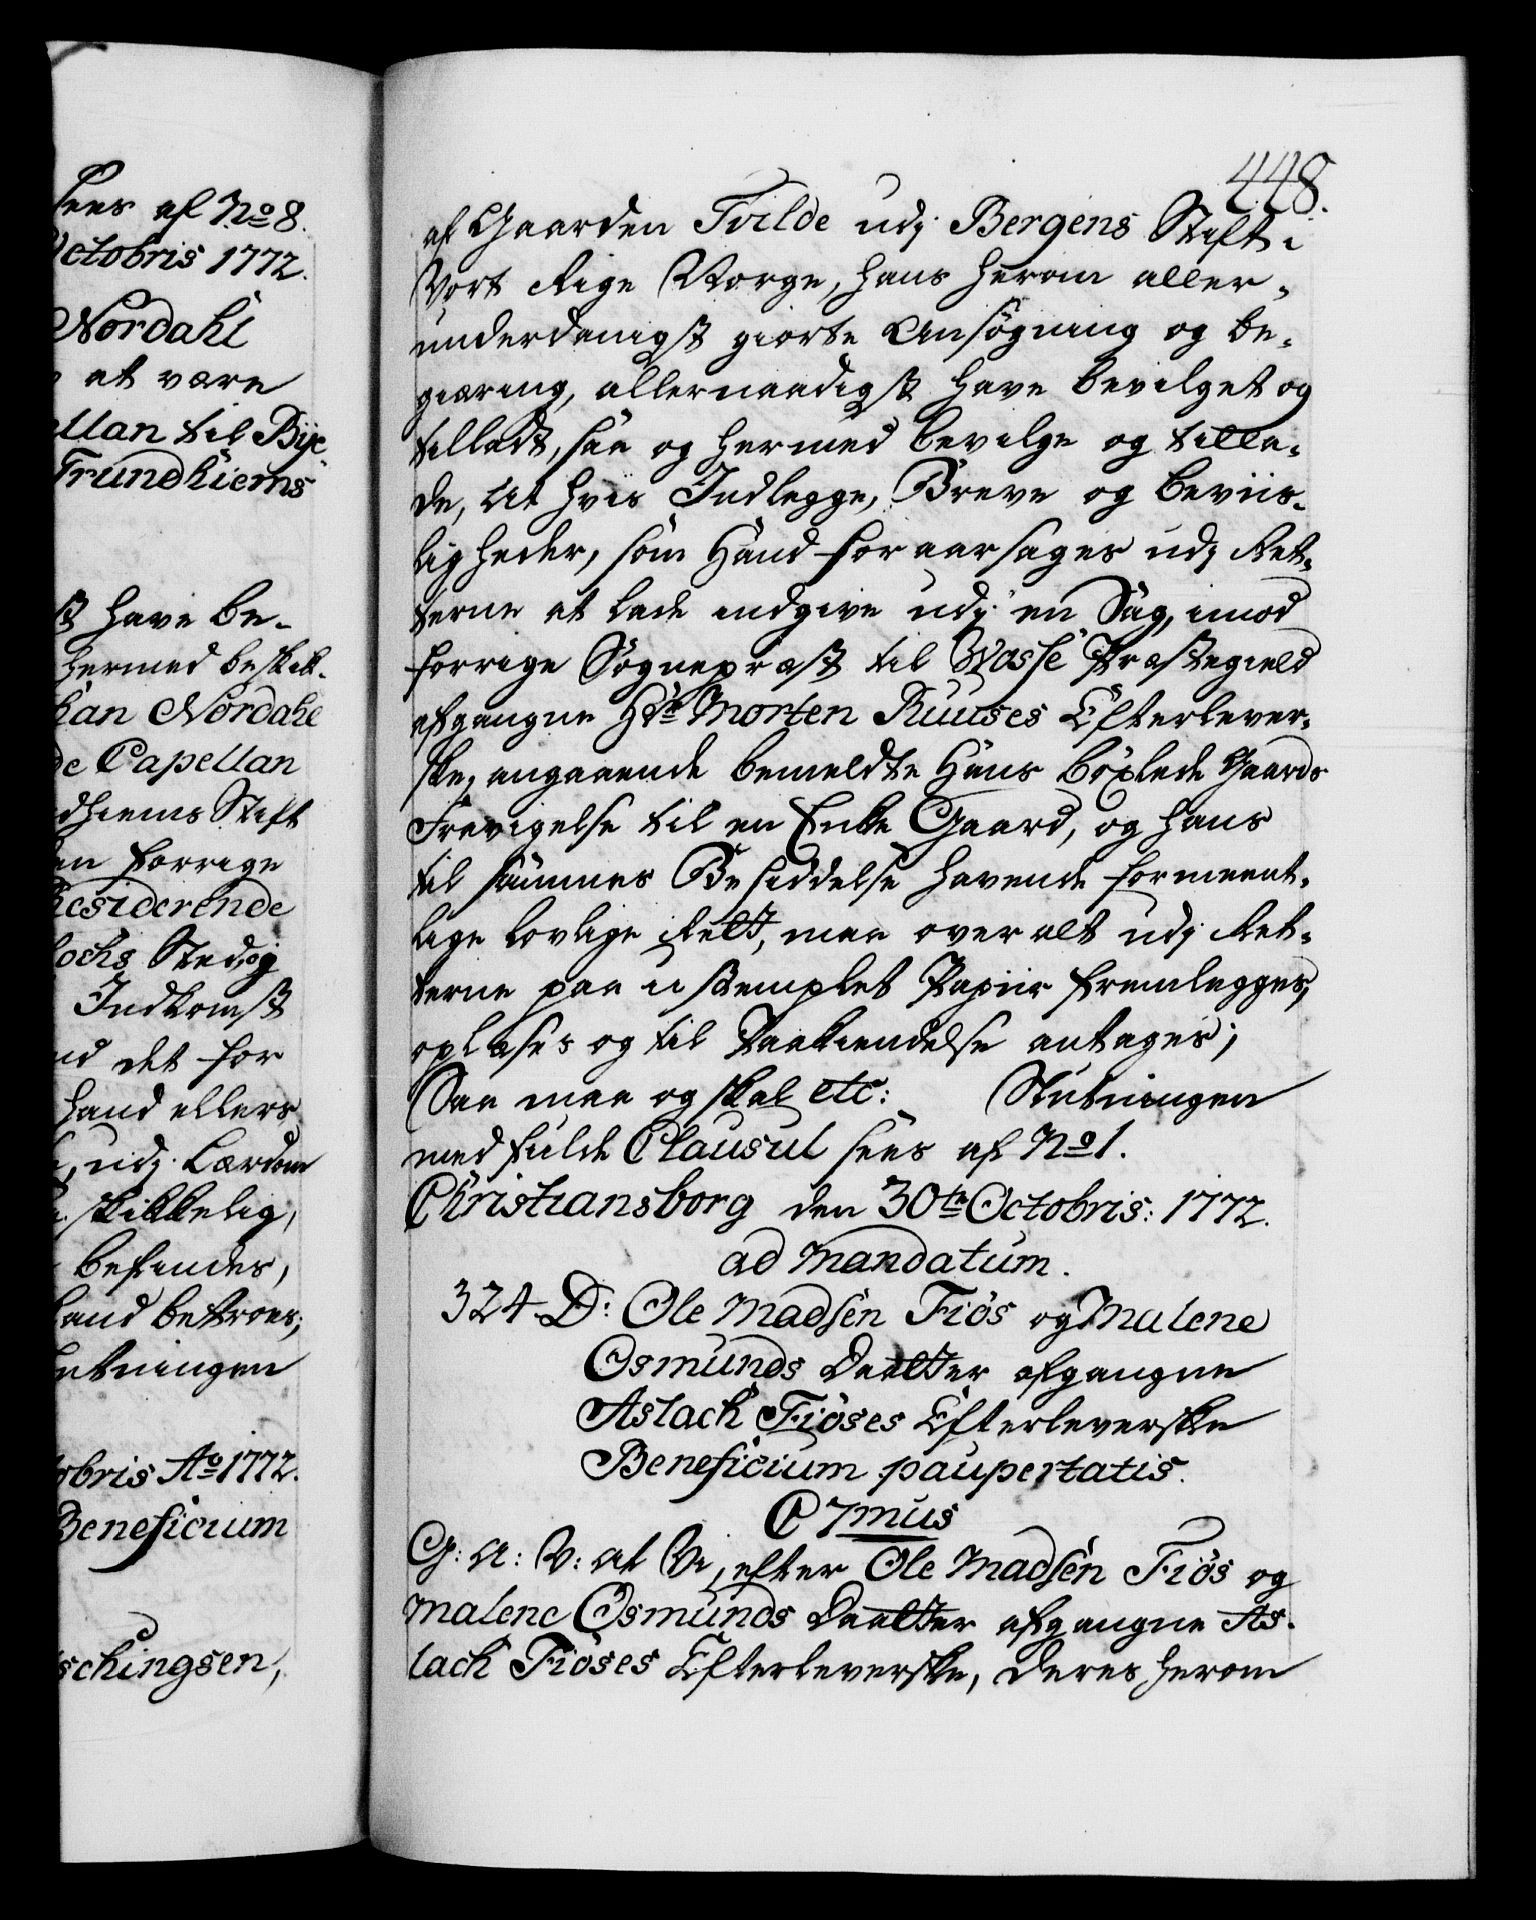 sees af No 8.
Octobris 1772.
Nordahl
at være
ellan til Bye
Trundhiems
st have be-
hermed beskik-
han Nordahl
de Capellan
dhiems Stift
en forrige
Residerende
lochs Sted, og
Indkomst
nd det for
hand ellers
udj Lærdom
skikkelig,
befindes,
hand betroes,
utningen
obris Ao 1772.
Beneficium
schingsen,
448.
af Gaarden Tvilde udj Bergens Stift i
Vort Rige Norge, hans herom aller-
underdanigst giorte Ansøgning og be-
giæring, allernaadigst have bevilget og
tilladt, saa og hermed bevilge og tilla-
de, at hvis Indlegge, Breve og beviis-
ligheder, som Hand foraarsages udj Ret-
terne at lade indgive udj en Sag, imod
forrige Sognepræst til Wosse Præstegield
afgangne Hr. Morten Ruuses Efterlever-
ske, angaaende bemeldte Hans böxlede Gaards
Fravigelse til en Enke Gaard, og hans
til sammes Besiddelse havende formeent-
lige lovlige Rett, maa over alt udj Ret-
terne paa ustemplet Papiir fremlegges,
oplæses og til Paakiendelse antages;
Saa maa og skal etc: Slutningen
med fulde Clausul sees af No 1.
Christiansborg den 30te Octobris: 1772.
ad Mandatum.
324. D: Ole Madsen Fiös og Malene
Osmunds Daatter afgangne
Aslach Fiöses Efterleverske
Beneficium paupertatis.
C 7mus
G: A: V: at Vi, efter Ole Madsen Fiös og
Malene Osmunds Daatter afgangne As-
lach Fiöses Efterleverske, deres herom